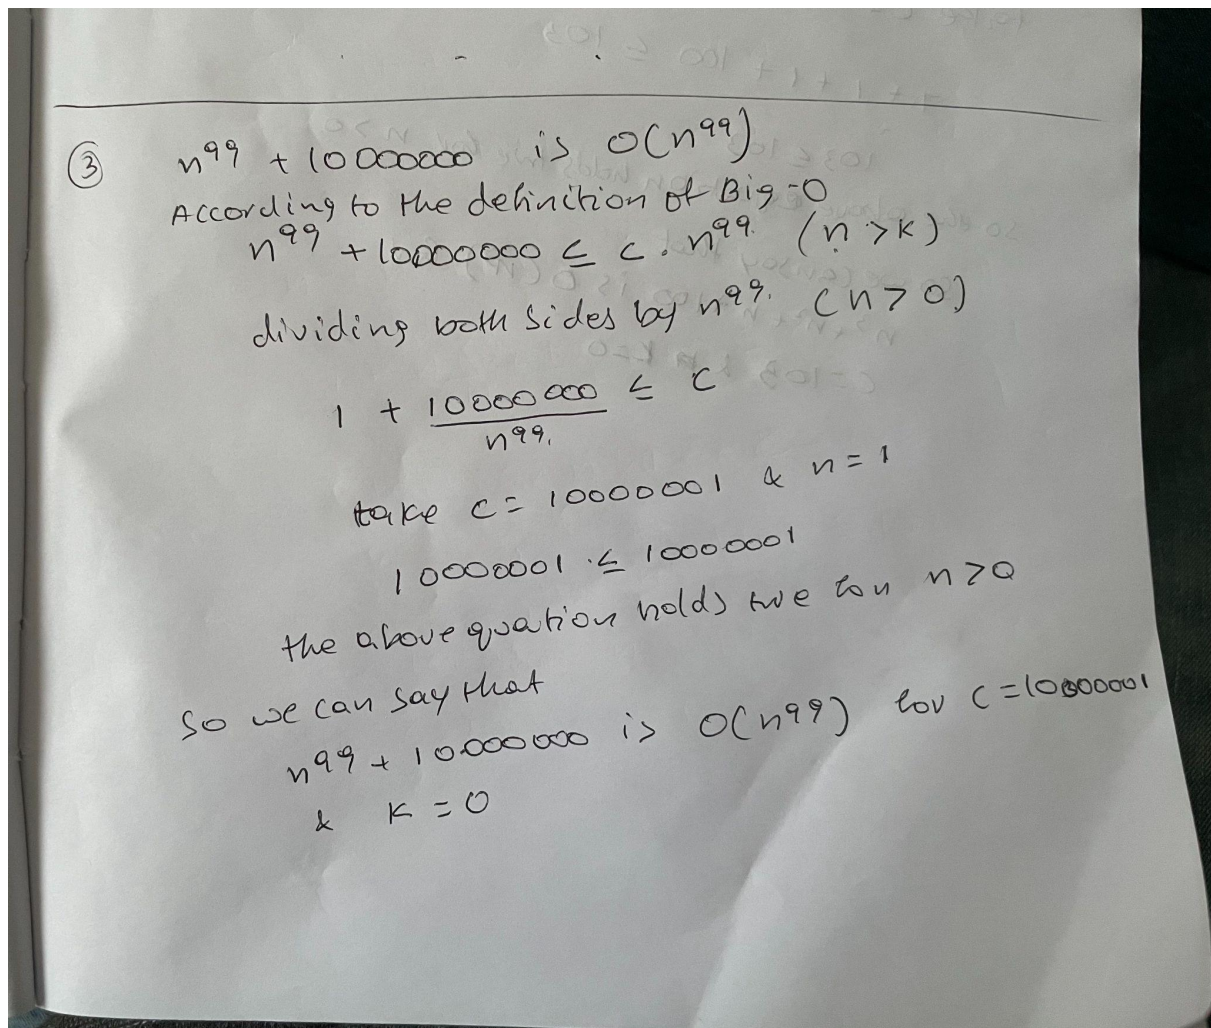 ③ n⁹⁹ + 10000000 is O(n⁹⁹)
According to the definition of Big-O
n⁹⁹ + 10000000 ≤ c . n⁹⁹. (n > k)
dividing both sides by n⁹⁹. (n > 0)
1 + 10000000 ≤ c
n⁹⁹.
take c = 10000001 & n = 1
10000001 ≤ 10000001
the above quation holds true for n > 0
So we can say that
n⁹⁹ + 10000000 is O(n⁹⁹) for C = 10000001
& K = 0